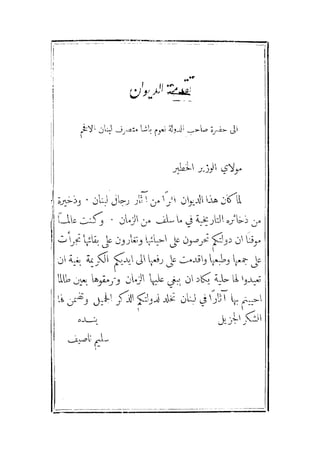 تقدمة الديوان
الى حضرة صاحب الدولة نعوم باشا متصرف لبنان الافخم
مولاي الوزير الخطير
لما كان هذا الديوان اثرًا من آثار رجال لبنان ٠ وذخيرة
من ذخائره التاريخية في ما سلف من الزمان ٠ وكنت عالمًا
موقنا ان دولتكم تحرصون على احيائها وتغارون على بقائها تجرأت
على جمعها وطبعها واقدمت على رفعها الى ايديكم الكريمة بغية ان
تعيدوا لها حلية يكاد ان يبغي عليها الزمان وترمقوها بعين طالما
احييتم بها آثارًا في لبنان تخلد لدولتكم الذكر الجميل وتضمن لها
الشكر الجزيل
بنده
سليم ناصيف